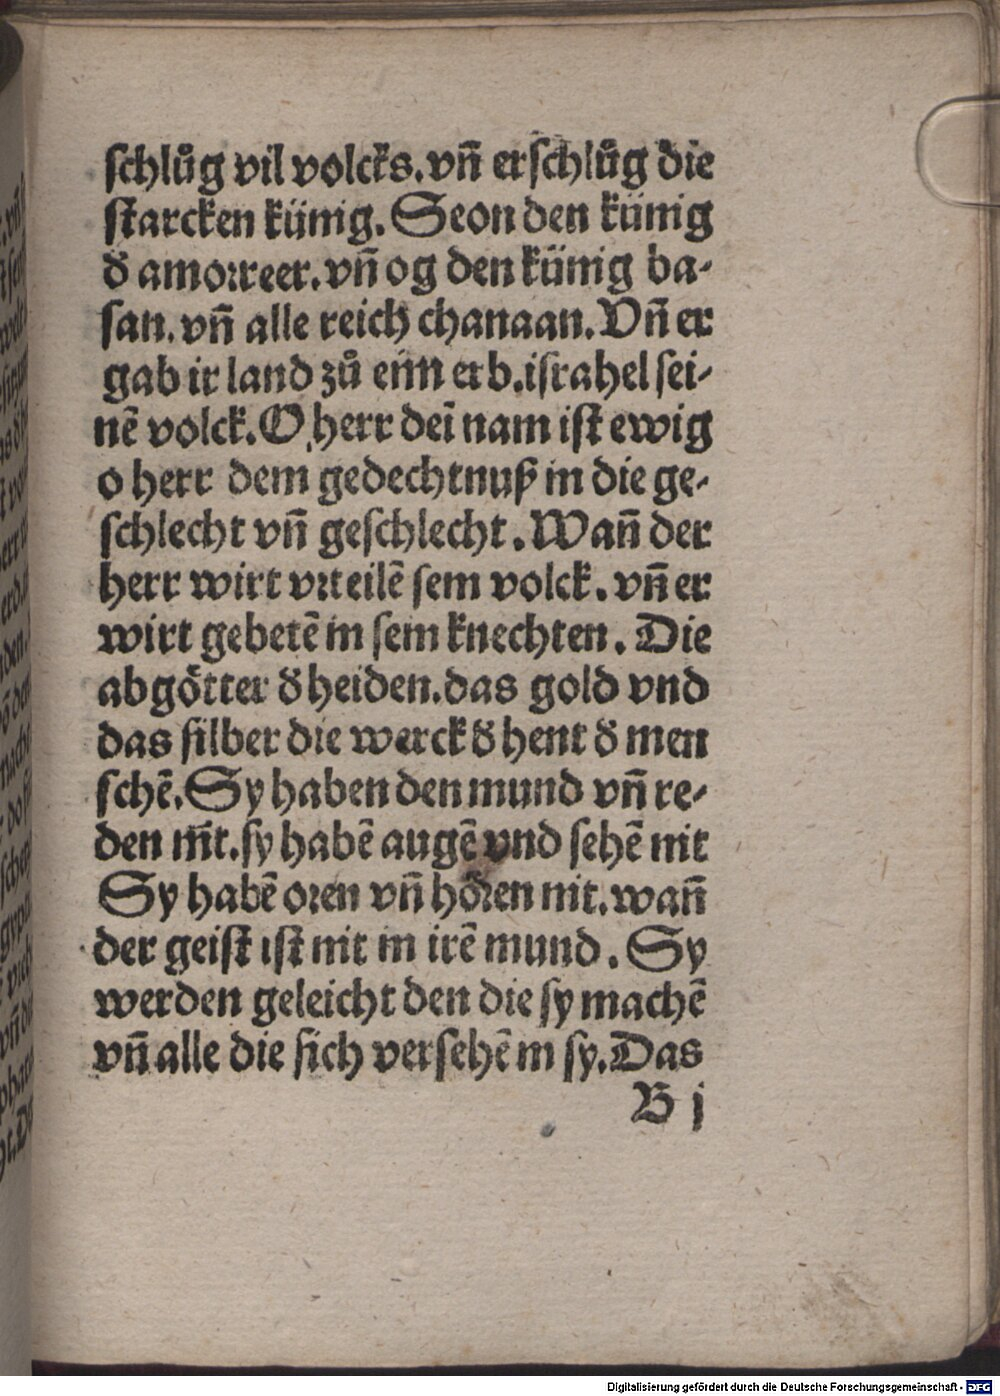 schlůg vil volcks. vñ erschlůg die
starcken künig. Seon den künig
đ amorreer. vñ og den künig ba-
san. vñ alle reich chanaan. Vñ er
gab ir land zů eim erb. israhel sei-
nē volck. O herr dei nam ist ewig
o herr dein gedechtnuß in die ge-
schlecht vñ geschlecht. Wañ der
herr wirt vrteilē sein volck. vñ er
wirt gebetē in sein knechten. Die
abgötter đ heiden. das gold vnd
das silber die werck đ hent đ men
schē. Sy haben den mund vñ re-
den nit. sy habē augē vnd sehē nit
Sy habē oren vñ hören nit. wañ
der geist ist nit in irē mund. Sy
werden geleicht den die sy machē
vñ alle die sich versehē in sy. Das
B j
Digitalisierung gefördert durch die Deutsche Forschungsgemeinschaft - DFG